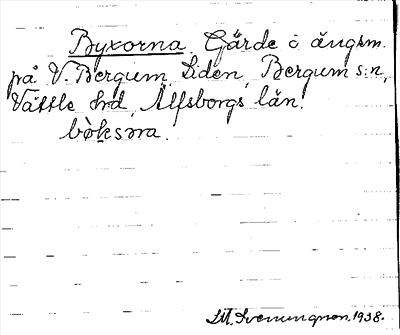 Byxorna. Gärde o. ängsm.
på V. Bergum, Liden, Bergum s:n,
Vättle hrd, Älfsborgs län.
bòksəra.
Svenungsson. 1938.